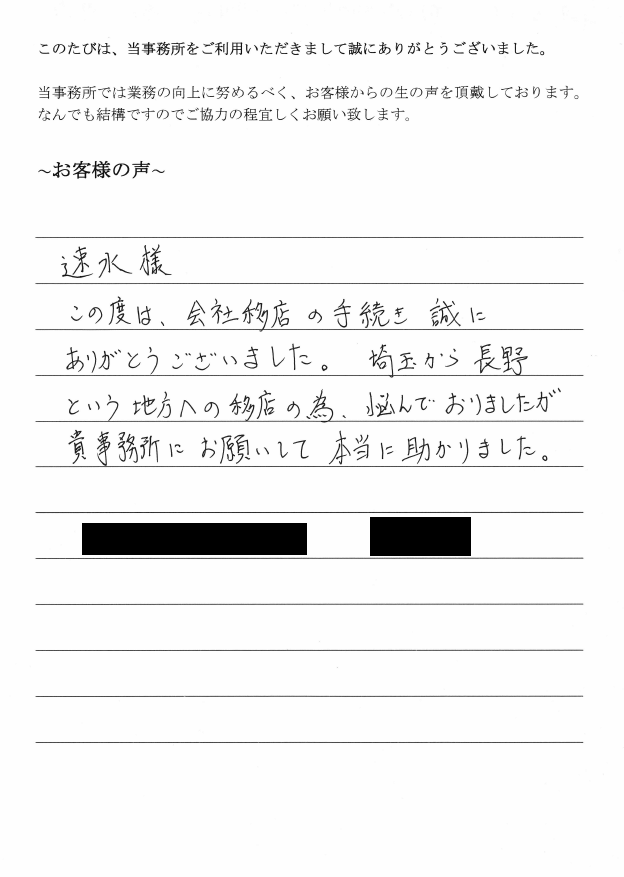 このたびは、当事務所をご利用いただきまして誠にありがとうございました。
当事務所では業務の向上に努めるべく、お客様からの生の声を頂戴しております。
なんでも結構ですのでご協力の程宜しくお願い致します。
～お客様の声～
速水様
この度は、会社移店の手続き 誠に
ありがとうございました。 埼玉から長野
という地方への移店の為、悩んでおりましたが
貴事務所にお願いして本当に助かりました。